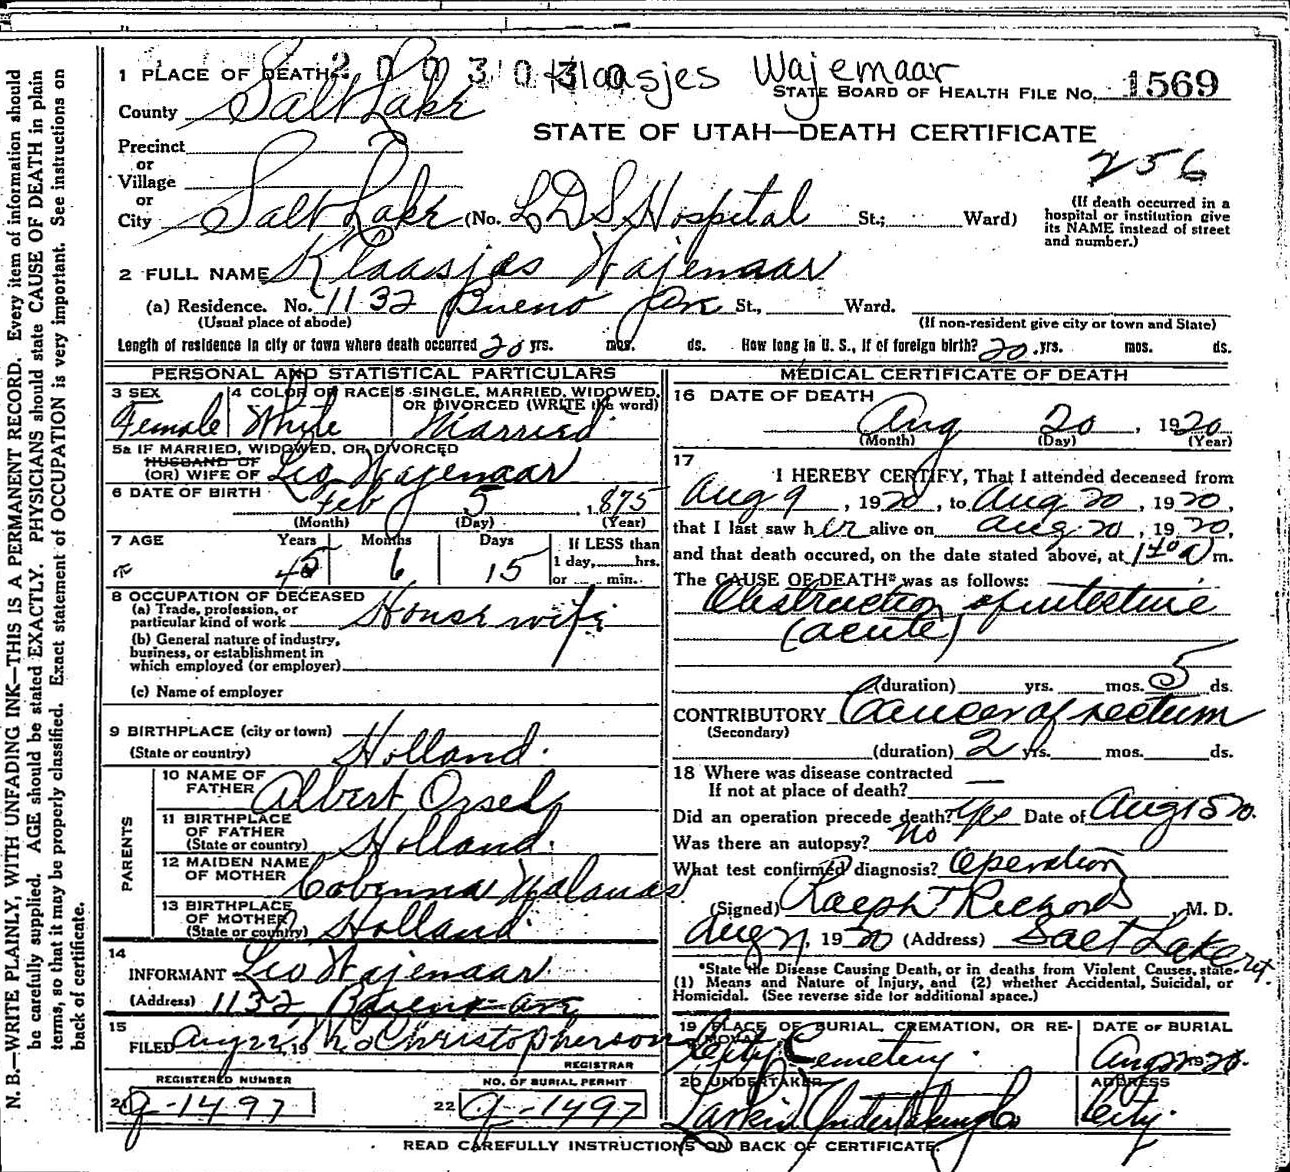 N. B.—WRITE PLAINLY, WITH UNFADING INK—THIS IS A PERMANENT RECORD. Every item of information should
be carefully supplied. AGE should be stated EXACTLY. PHYSICIANS should state CAUSE OF DEATH in plain
terms, so that it may be properly classified. Exact statement of OCCUPATION is very important. See instructions on
back of certificate.
Klaasjes Wajemaar
1 PLACE OF DEATH 2 0 0 3 0 3 0
STATE BOARD OF HEALTH FILE NO. 1569
County Salt Lake
STATE OF UTAH—DEATH CERTIFICATE
256
Precinct
or
Village
or
City Salt Lake (No. LDS Hospital St.; Ward)
(If death occurred in a
hospital or institution give
its NAME instead of street
and number.)
2 FULL NAME Klaasjes Wajemaar
(a) Residence. No. 1132 Bueno Ave St., Ward.
(Usual place of abode) (If non-resident give city or town and State)
Length of residence in city or town where death occurred 20 yrs. mos. ds. How long in U. S., if of foreign birth? 20 yrs. mos. ds.
PERSONAL AND STATISTICAL PARTICULARS
3 SEX Female
4 COLOR OR RACE White
5 SINGLE, MARRIED, WIDOWED,
OR DIVORCED (WRITE the word)
Married
5a IF MARRIED, WIDOWED, OR DIVORCED
HUSBAND OF
(OR) WIFE OF Leo Wajemaar
6 DATE OF BIRTH Feb 5, 1875
(Month) (Day) (Year)
7 AGE Years Months Days If LESS than
1 day, hrs.
45 6 15 or min.
8 OCCUPATION OF DECEASED
(a) Trade, profession, or
particular kind of work Housewife
(b) General nature of industry,
business, or establishment in
which employed (or employer)
(c) Name of employer
9 BIRTHPLACE (city or town)
(State or country) Holland
PARENTS
10 NAME OF
FATHER Albert Orsel
11 BIRTHPLACE
OF FATHER
(State or country) Holland
12 MAIDEN NAME
OF MOTHER
13 BIRTHPLACE
OF MOTHER
(State or country) Holland
14
INFORMANT Leo Wajemaar
(Address) 1132 Bueno Ave
15
FILED Aug 22, 19 Christopherson
REGISTRAR
REGISTERED NUMBER
21 9-1497
NO. OF BURIAL PERMIT
22 9-1497
MEDICAL CERTIFICATE OF DEATH
16 DATE OF DEATH
Aug 20, 1920
(Month) (Day) (Year)
17
I HEREBY CERTIFY, That I attended deceased from
Aug 9, 1920, to Aug 20, 1920,
that I last saw her alive on Aug 20, 1920,
and that death occured, on the date stated above, at 140 a m.
The CAUSE OF DEATH* was as follows:
Obstruction of intestine
(acute)
(duration) yrs. mos. 5 ds.
CONTRIBUTORY Cancer of rectum
(Secondary)
(duration) 2 yrs. mos. ds.
18 Where was disease contracted
If not at place of death? —
Did an operation precede death? Yes Date of Aug 15 20.
Was there an autopsy? No
What test confirmed diagnosis? Operation
(Signed) Ralph T Richards, M. D.
Aug 21, 1920 (Address) Salt Lake Ut.
*State the Disease Causing Death, or in deaths from Violent Causes, state
(1) Means and Nature of Injury, and (2) whether Accidental, Suicidal, or
Homicidal. (See reverse side for additional space.)
19 PLACE OF BURIAL, CREMATION, OR RE-
MOVAL
City Cemetery.
DATE OF BURIAL
Aug 22 1920.
20 UNDERTAKER
Larkin Undertaking Co
ADDRESS
City.
READ CAREFULLY INSTRUCTIONS ON BACK OF CERTIFICATE.